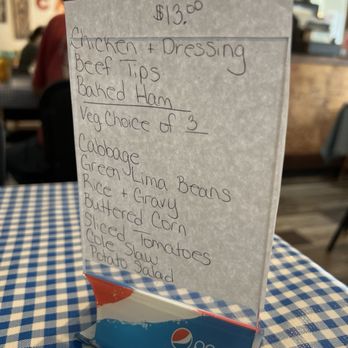 $13.00
Chicken + Dressing
Beef Tips
Baked Ham
Veg Choice of 3
Cabbage
Green Lima Beans
Rice + Gravy
Buttered Corn
Sliced Tomatoes
Cole Slaw
Potato Salad